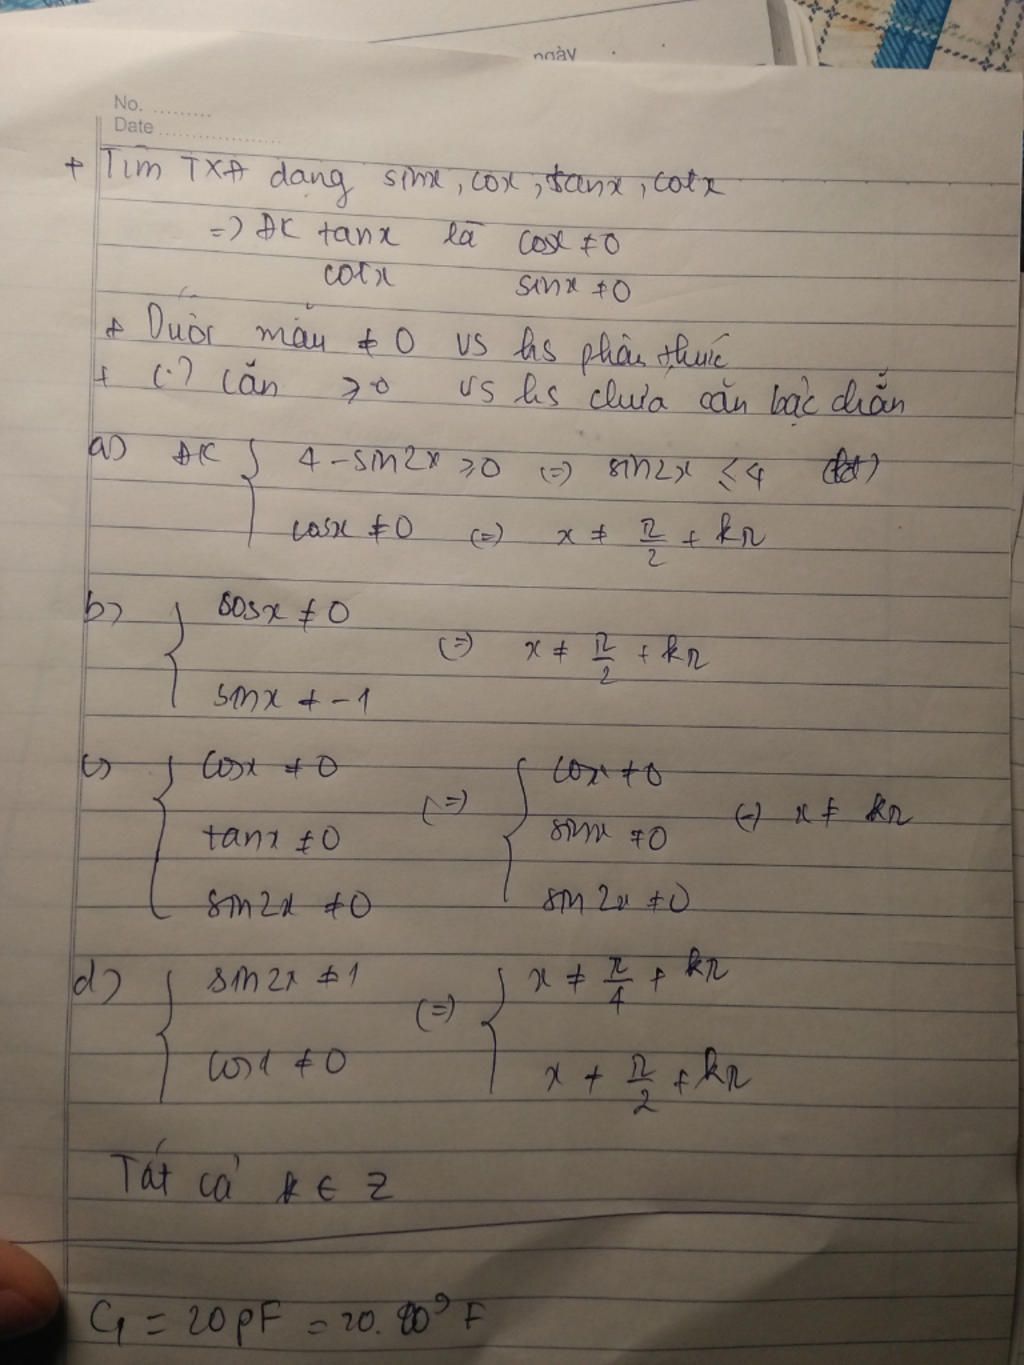 ngày
No. ..........
Date ....................
+ Tìm TXĐ dạng sinx, cox, tanx, cotx
=> ĐK tanx là cosx ≠ 0
cotx sinx ≠ 0
+ Dưới mẫu ≠ 0 vs hs phân thức
+ (.) căn ≥ 0 vs hs chứa căn bậc chẵn
a) ĐK { 4 - sin2x ≥ 0 (=) sin2x ≤ 4
cosx ≠ 0 (=) x ≠ π/2 + kπ
b) { cosx ≠ 0
(=) x ≠ π/2 + kπ
sinx ≠ -1
c) { cosx ≠ 0 { cosx ≠ 0
tanx ≠ 0 (=) sinx ≠ 0 (=) x ≠ kπ
sin2x ≠ 0 sin2x ≠ 0
d) { sin2x ≠ 1 (=) { x ≠ π/4 + kπ
cosx ≠ 0 x ≠ π/2 + kπ
Tất cả k ∈ Z
C₁ = 20pF = 20.10⁹ F